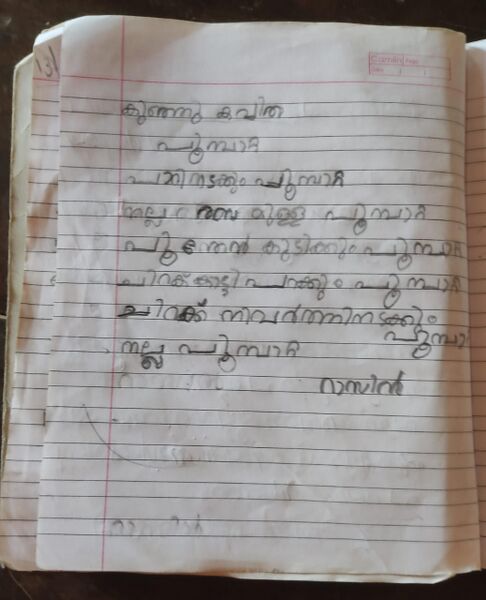 13
Camlin Page
Date
കുഞ്ഞു കവിത
പൂമ്പാറ്റ
പാറിനടക്കും പൂമ്പാറ്റ
നല്ല മുള്ള പൂമ്പാറ്റ
പൂന്തേൻ കുടിക്കും പൂമ്പാറ്റ
ചിറക് കാട്ടി പറക്കും പൂമ്പാറ്റ
ചിറക് നിവർത്തിനടക്കും
പൂമ്പാ
നല്ല പൂമ്പാറ്റ
റാസിൻ